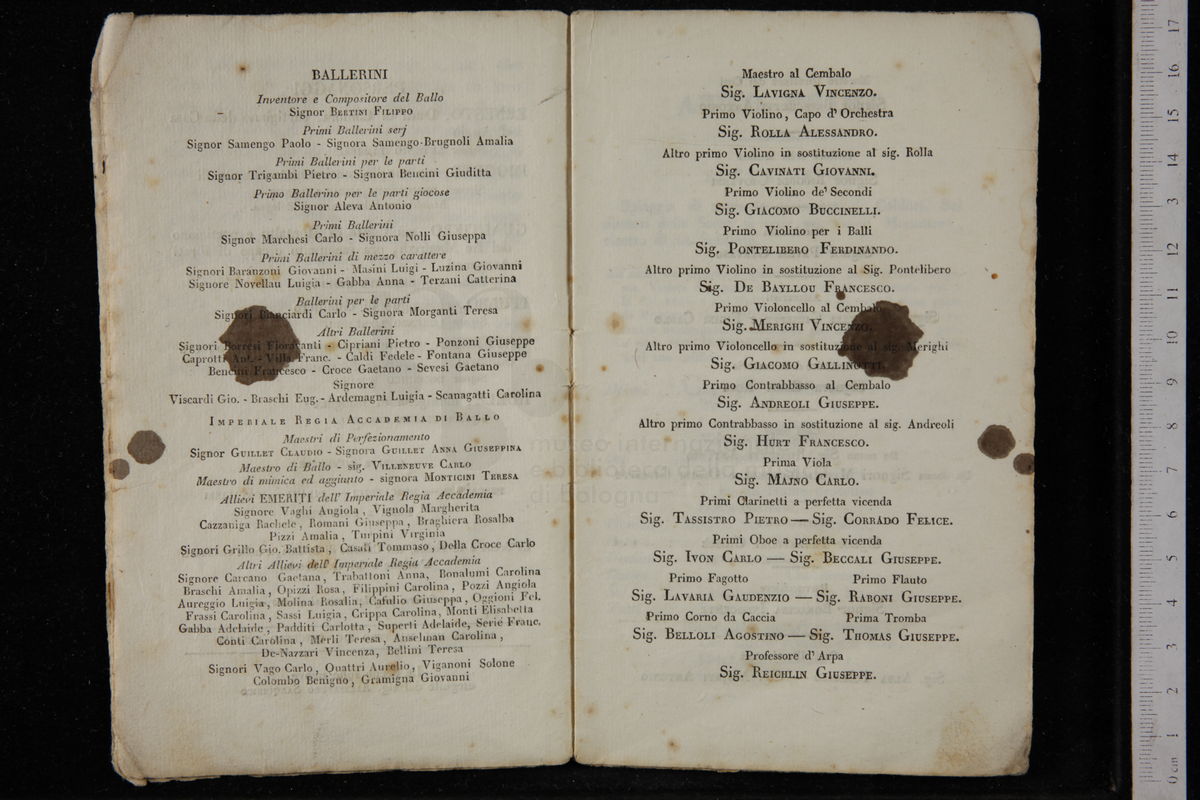 BALLERINI
Inventore e Compositore del Ballo
Signor BERTINI FILIPPO
Primi Ballerini serj
Signor Samengo Paolo - Signora Samengo-Brugnoli Amalia
Primi Ballerini per le parti
Signor Trigambi Pietro - Signora Bencini Giuditta
Primo Ballerino per le parti giocose
Signor Aleva Antonio
Primi Ballerini
Signor Marchesi Carlo - Signora Nolli Giuseppa
Primi Ballerini di mezzo carattere
Signori Baranzoni Giovanni - Masini Luigi - Luzina Giovanni
Signore Novellau Luigia - Gabba Anna - Terzani Catterina
Ballerini per le parti
Signori Bianciardi Carlo - Signora Morganti Teresa
Altri Ballerini
Signori Borresi Fioravanti - Cipriani Pietro - Ponzoni Giuseppe
Caprotti Ant. - Villa Franc. - Caldi Fedele - Fontana Giuseppe
Bencini Francesco - Croce Gaetano - Sevesi Gaetano
Signore
Viscardi Gio. - Braschi Eug. - Ardemagni Luigia - Scanagatti Carolina
IMPERIALE REGIA ACCADEMIA DI BALLO
Maestri di Perfezionamento
Signor GUILLET CLAUDIO - Signora GUILLET ANNA GIUSEPPINA
Maestro di Ballo - sig. VILLENEUVE CARLO
Maestro di mimica ed aggiunto - signora MONTICINI TERESA
Allievi EMERITI dell' Imperiale Regia Accademia
Signore Vaghi Angiola, Vignola Margherita
Cazzaniga Rachele, Romani Giuseppa, Braghiera Rosalba
Pizzi Amalia, Turpini Virginia
Signori Grillo Gio. Battista, Casati Tommaso, Della Croce Carlo
Altri Allievi dell' Imperiale Regia Accademia
Signore Carcano Gaetana, Trabattoni Anna, Bonalumi Carolina
Braschi Amalia, Opizzi Rosa, Filippini Carolina, Pozzi Angiola
Aureggio Luigia, Molina Rosalia, Cafulio Giuseppa, Oggioni Fel.
Frassi Carolina, Sassi Luigia, Crippa Carolina, Monti Elisabetta
Gabba Adelaide, Padditi Carlotta, Superti Adelaide, Serie Franc.
Conti Carolina, Merli Teresa, Anselman Carolina,
De-Nazzari Vincenza, Bellini Teresa
Signori Vago Carlo, Quattri Aurelio, Viganoni Solone
Colombo Benigno, Gramigna Giovanni
Maestro al Cembalo
Sig. LAVIGNA VINCENZO.
Primo Violino, Capo d' Orchestra
Sig. ROLLA ALESSANDRO.
Altro primo Violino in sostituzione al sig. Rolla
Sig. CAVINATI GIOVANNI.
Primo Violino de' Secondi
Sig. GIACOMO BUCCINELLI.
Primo Violino per i Balli
Sig. PONTELIBERO FERDINANDO.
Altro primo Violino in sostituzione al Sig. Pontelibero
Sig. DE BAYLLOU FRANCESCO.
Primo Violoncello al Cembalo
Sig. MERIGHI VINCENZO.
Altro primo Violoncello in sostituzione al sig. Merighi
Sig. GIACOMO GALLINOTTI.
Primo Contrabbasso al Cembalo
Sig. ANDREOLI GIUSEPPE.
Altro primo Contrabbasso in sostituzione al sig. Andreoli
Sig. HURT FRANCESCO.
Prima Viola
Sig. MAJNO CARLO.
Primi Clarinetti a perfetta vicenda
Sig. TASSISTRO PIETRO — Sig. CORRADO FELICE.
Primi Oboe a perfetta vicenda
Sig. IVON CARLO — Sig. BECCALI GIUSEPPE.
Primo Fagotto Primo Flauto
Sig. LAVARIA GAUDENZIO — Sig. RABONI GIUSEPPE.
Primo Corno da Caccia Prima Tromba
Sig. BELLOLI AGOSTINO — Sig. THOMAS GIUSEPPE.
Professore d' Arpa
Sig. REICHLIN GIUSEPPE.
museo internaz
e biblioteca della
di bologna
0 cm 1 2 3 4 5 6 7 8 9 10 11 12 3 14 15 16 17